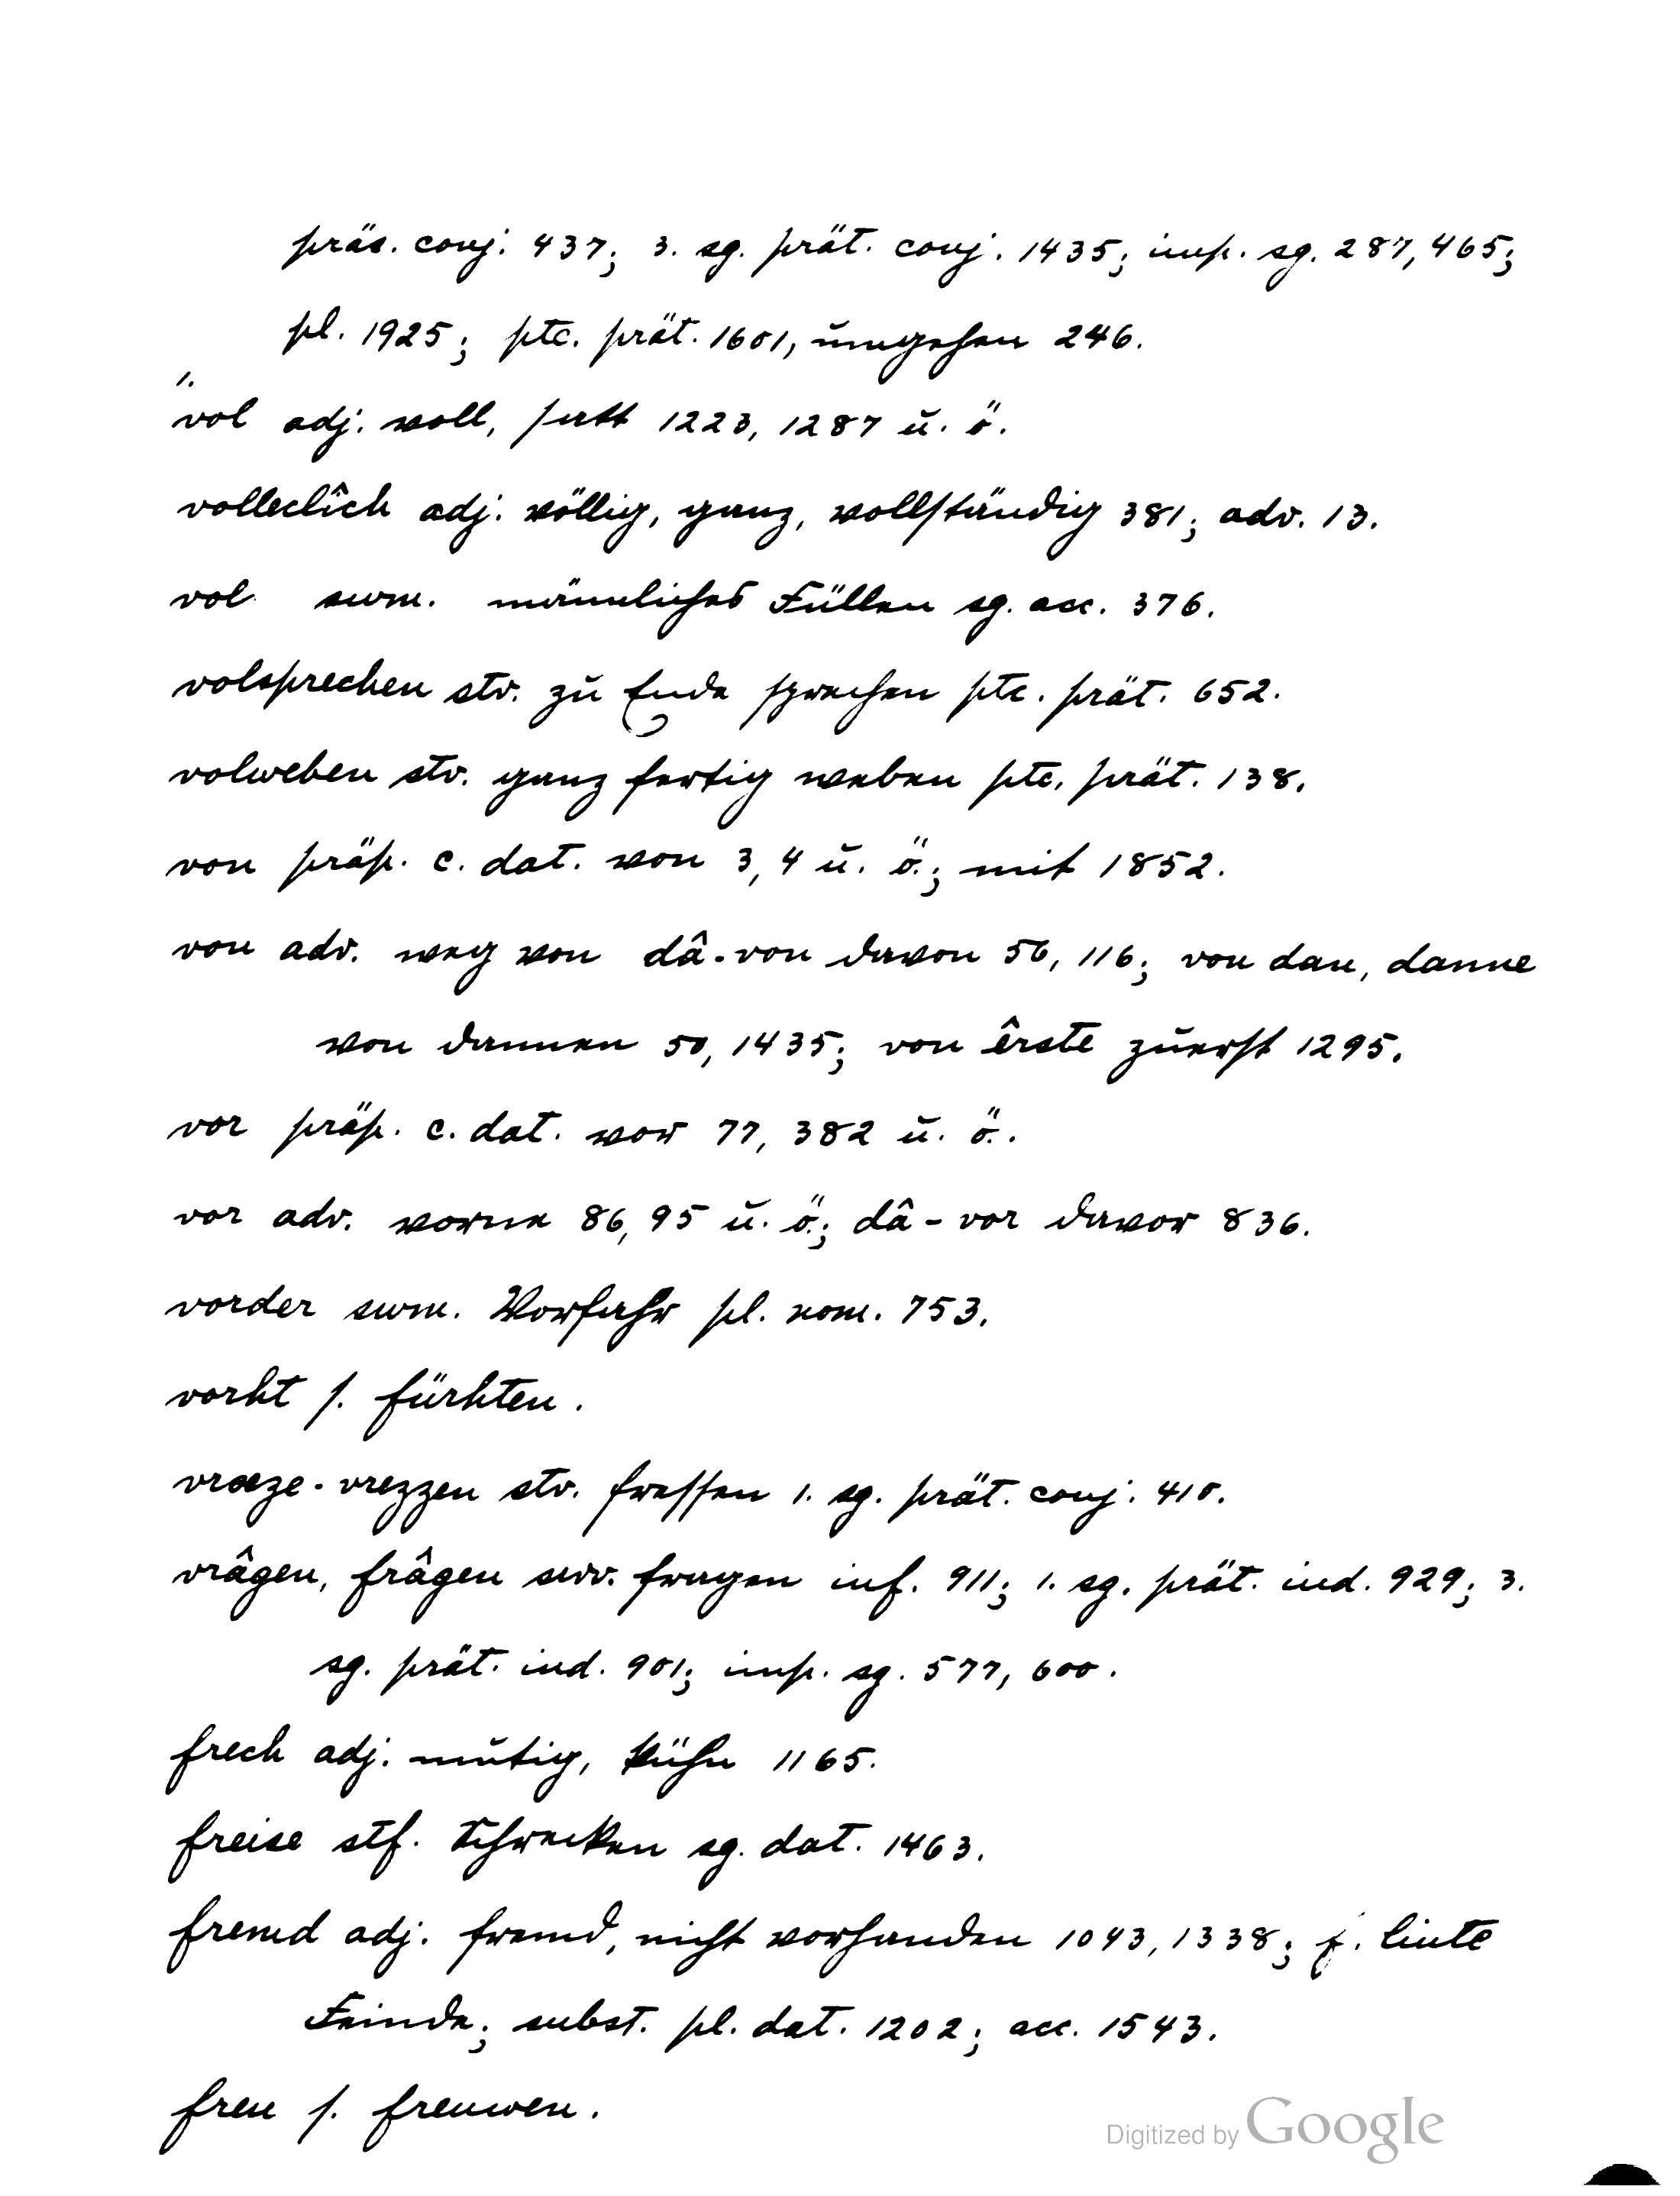 präs. conj. 437; 3. sg. prät. conj. 1435; imp. sg. 287, 465;
pl. 1925; ptc. prät. 1601, umgehen 246.
1.
vol adj. voll, satt 1223, 1287 u. ö.
volleclîch adj. völlig, ganz, vollständig 381; adv. 13.
vol swm. männliches Füllen sg. acc. 376.
volsprechen stv. zu Ende sprechen ptc. prät. 652.
volweben stv. ganz fertig weben ptc. prät. 138.
von präp. c. dat. von 3, 4 u. ö.; mit 1852.
von adv. weg von dâ-von davon 56, 116; von dan, danne
von dannen 50, 1435; von êrste zuerst 1295.
vor präp. c. dat. vor 77, 382 u. ö.
vor adv. vorne 86, 95 u. ö.; dâ-vor davor 836.
vorder swm. Vorfahr pl. nom. 753.
vorht s. fürhten.
vræze - vrezzen stv. fressen 1. sg. prät. conj. 410.
vrâgen, frâgen swv. fragen inf. 911; 1. sg. prät. ind. 929; 3.
sg. prät. ind. 901; imp. sg. 577, 600.
frech adj. mutig, kühn 1165.
freise stf. Schrecken sg. dat. 1463.
fremd adj. fremd, nicht vorhanden 1043, 1338; f. liute
Feinde; subst. pl. dat. 1202; acc. 1543.
freu s. freuwen.
Digitized by Google